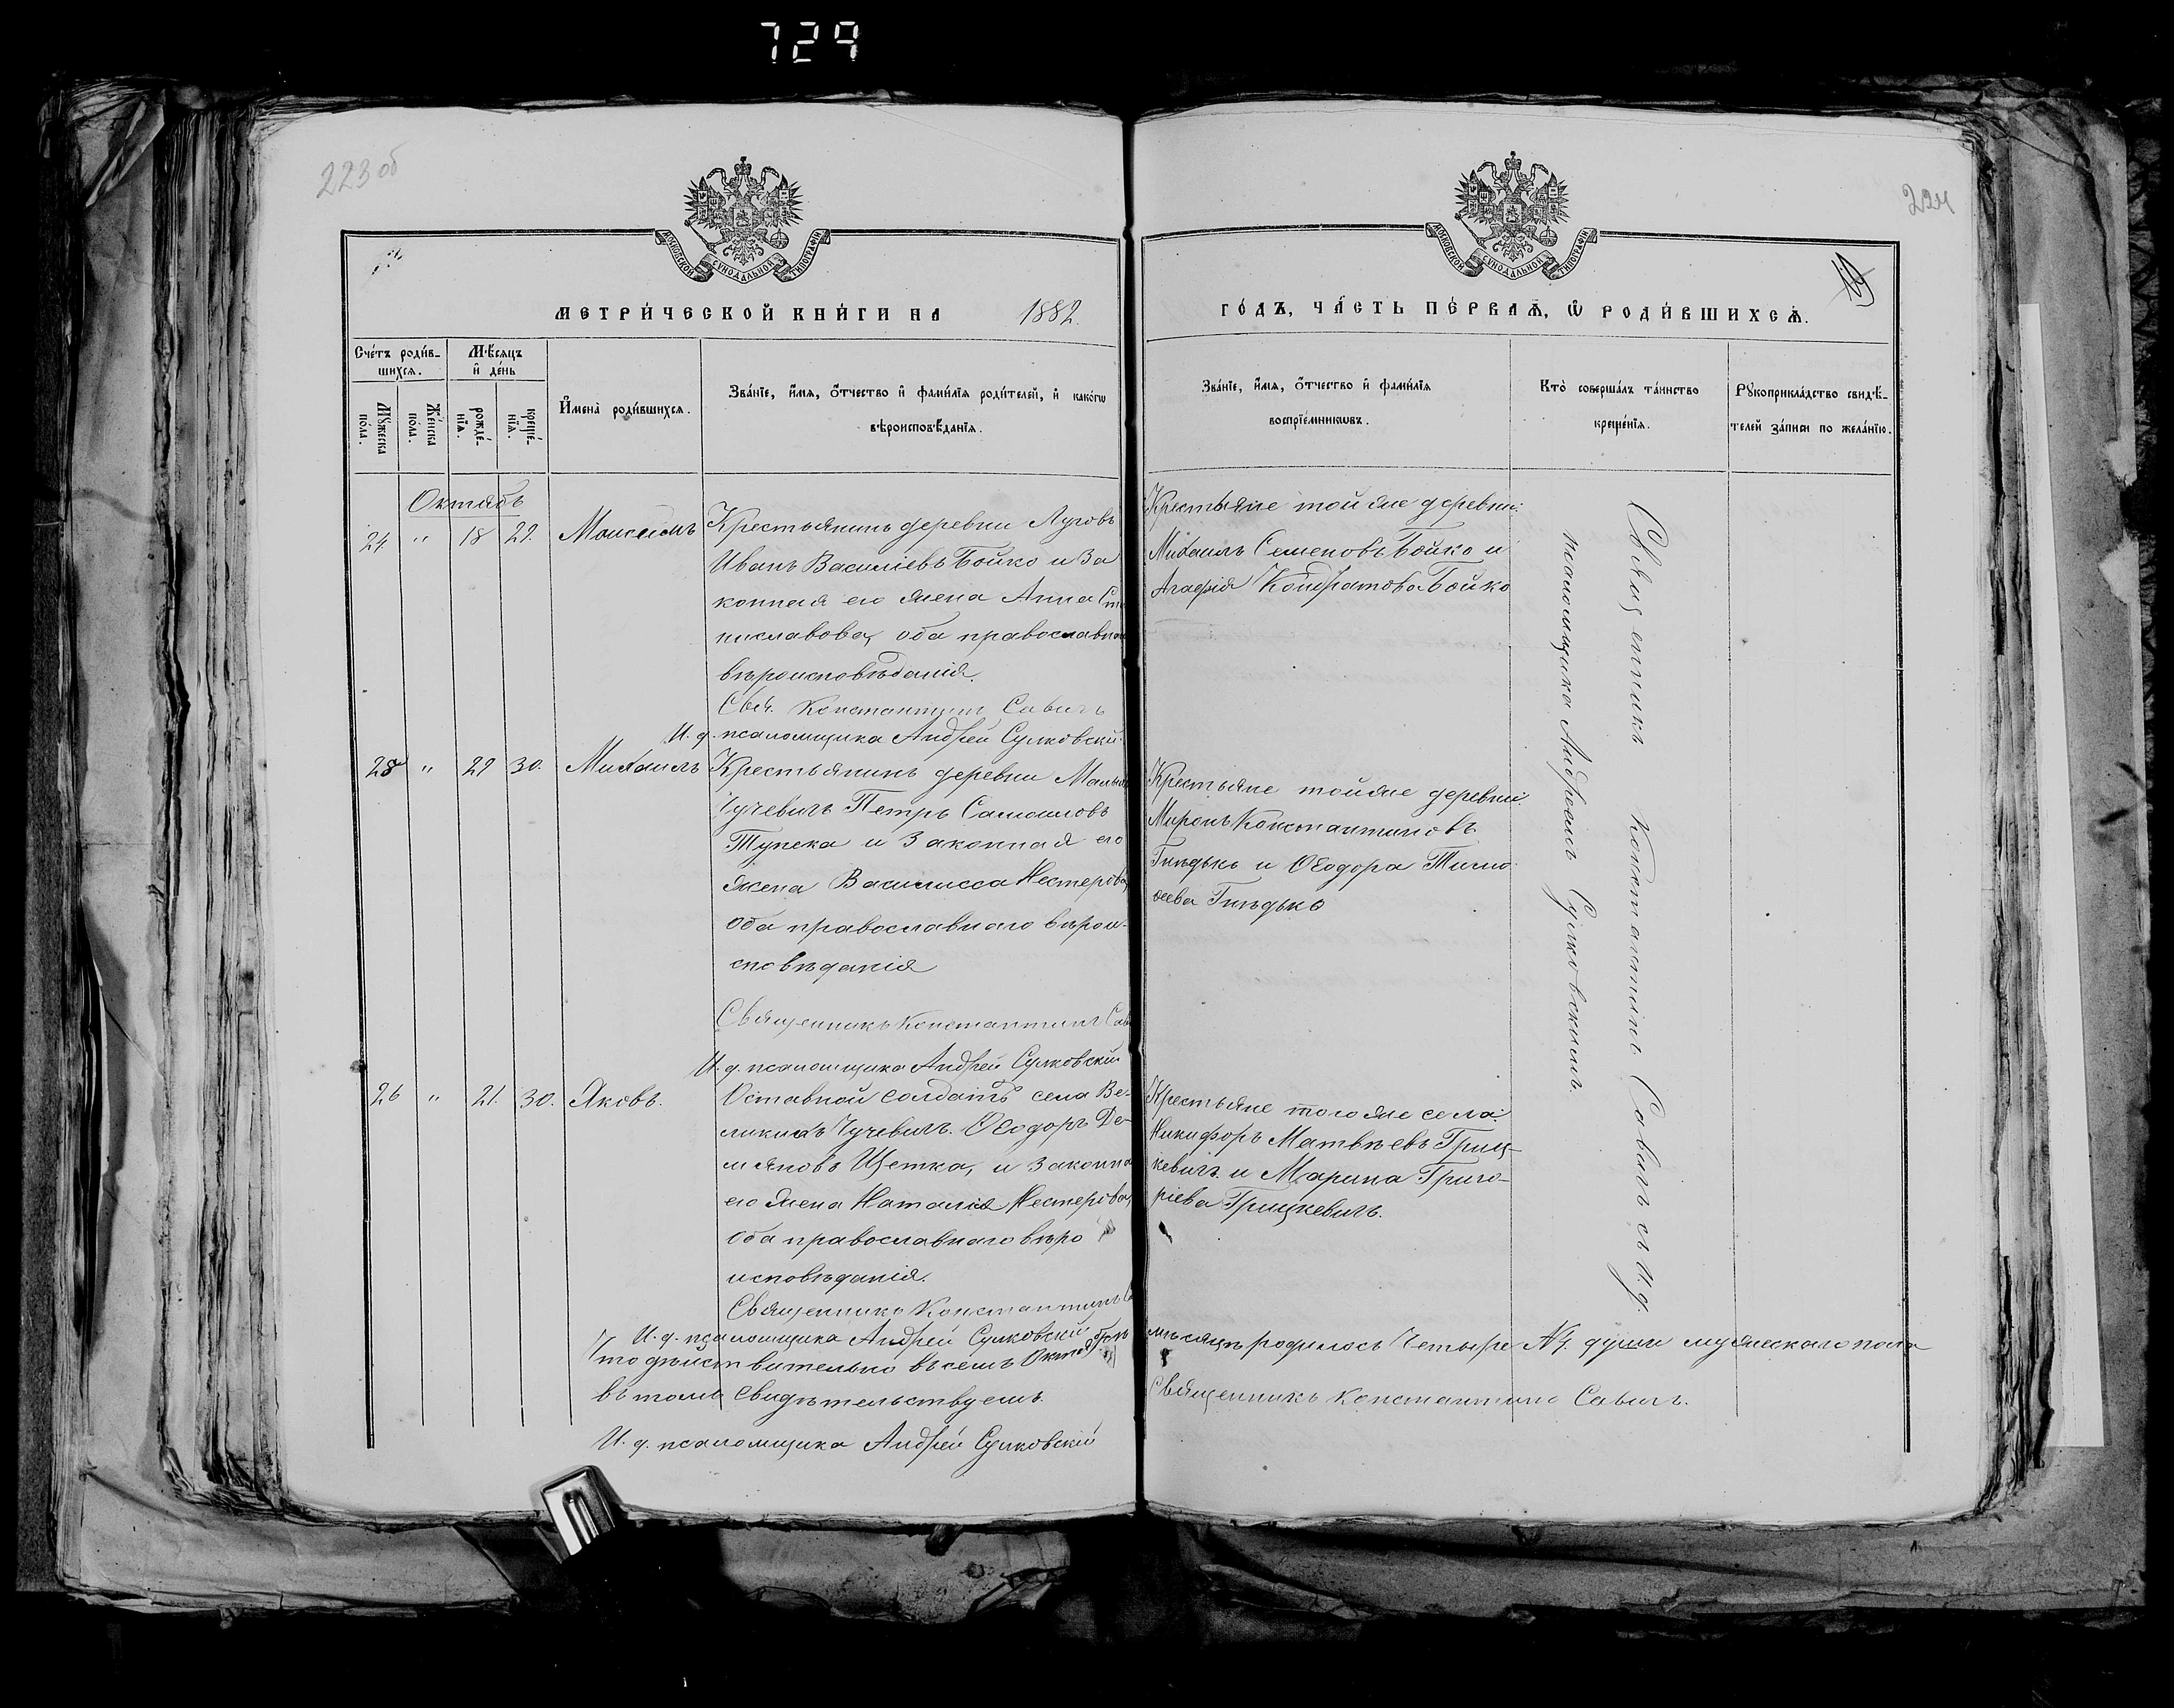 729
223 об
224
МОСКОВСКОЙ СѴНОДАЛЬНОЙ ТИПОГРАФІИ
МОСКОВСКОЙ СѴНОДАЛЬНОЙ ТИПОГРАФІИ
19
МЕТРИ́ЧЕСКОЙ КНИ́ГИ НА 1882.
ГО́ДЪ, ЧА́СТЬ ПЕ́РВАѦ, Ѽ РОДИ́ВШИХСѦ.
Сче́тъ роди́в-
шихсѧ.
Мꙋ́жеска
по́ла.
Же́нска
по́ла.
Мѣ́сяцъ
и҆ де́нь
рожде́-
нїѧ.
креще́-
нїѧ.
И҆мена̀ роди́вшихсѧ.
Зва́нїе, и҆́мѧ, ѻ҆́тчество и҆ фами́лїѧ роди́телей, и҆ како́гѡ
вѣроисповѣ́данїѧ.
Зва́нїе, и҆́мѧ, ѻ҆́тчество и҆ фами́лїѧ
воспрїе́мникѡвъ.
Кто̀ соверша́лъ та́инство
креще́нїѧ.
Рꙋкоприкла́дство свидѣ́-
телей за́писи по жела́нїю.
Октябъ
24. " 18 29. Моисеемъ
Крестьянинъ деревни Луговъ
Иванъ Василіевъ Бойко и за
конная его жена Анна Ста
ниславова, оба православнаго
вѣроисповѣданія.
Свя. Константинъ Савичъ
И. д. псаломщика Андрей Сулковскій
Крестьяне той же деревни:
Михаилъ Семеновъ Бойко и
Агафія Кондратова Бойко
25 " 29 30. Михаилъ
Крестьянинъ деревни Малыхъ
Чучевичъ Петръ Самоиловъ
Тупека и законная его
жена Василисса Нестерова,
оба православнаго вѣрои-
сповѣданія
Священникъ Константинъ Сав
И. д. псаломщика Андрей Сулковскій
Крестьяне той же деревни:
Миронъ Константиновъ
Гнѣдько и Ѳеодора Тимо
ѳеева Гнѣдько
26 " 21. 30. Яковъ.
Оставной солдатъ села Ве-
ликихъ Чучевичъ. Ѳеодоръ Де-
мяновъ Щетка, и законна
его жена Наталія Нестерова,
оба православнаго вѣро
исповѣданія.
Священникъ Константинъ
И. д. псаломщика Андрей Сулковскій
Крестьяне того же села:
Никифоръ Матвѣевъ Гриц-
кевичъ и Марина Григо-
ріева Грицкевичъ.
Священникъ Константинъ Савичъ съ И. д.
псаломщика Андреемъ Сулковскимъ.
Что дѣйствительно въ семъ Октябрѣ мѣсяцѣ родилось четыре №4. души мужескаго пола
въ томъ свидѣтельствуемъ. Священникъ Константинъ Савичъ.
И. д. псаломщика Андрей Сулковскій